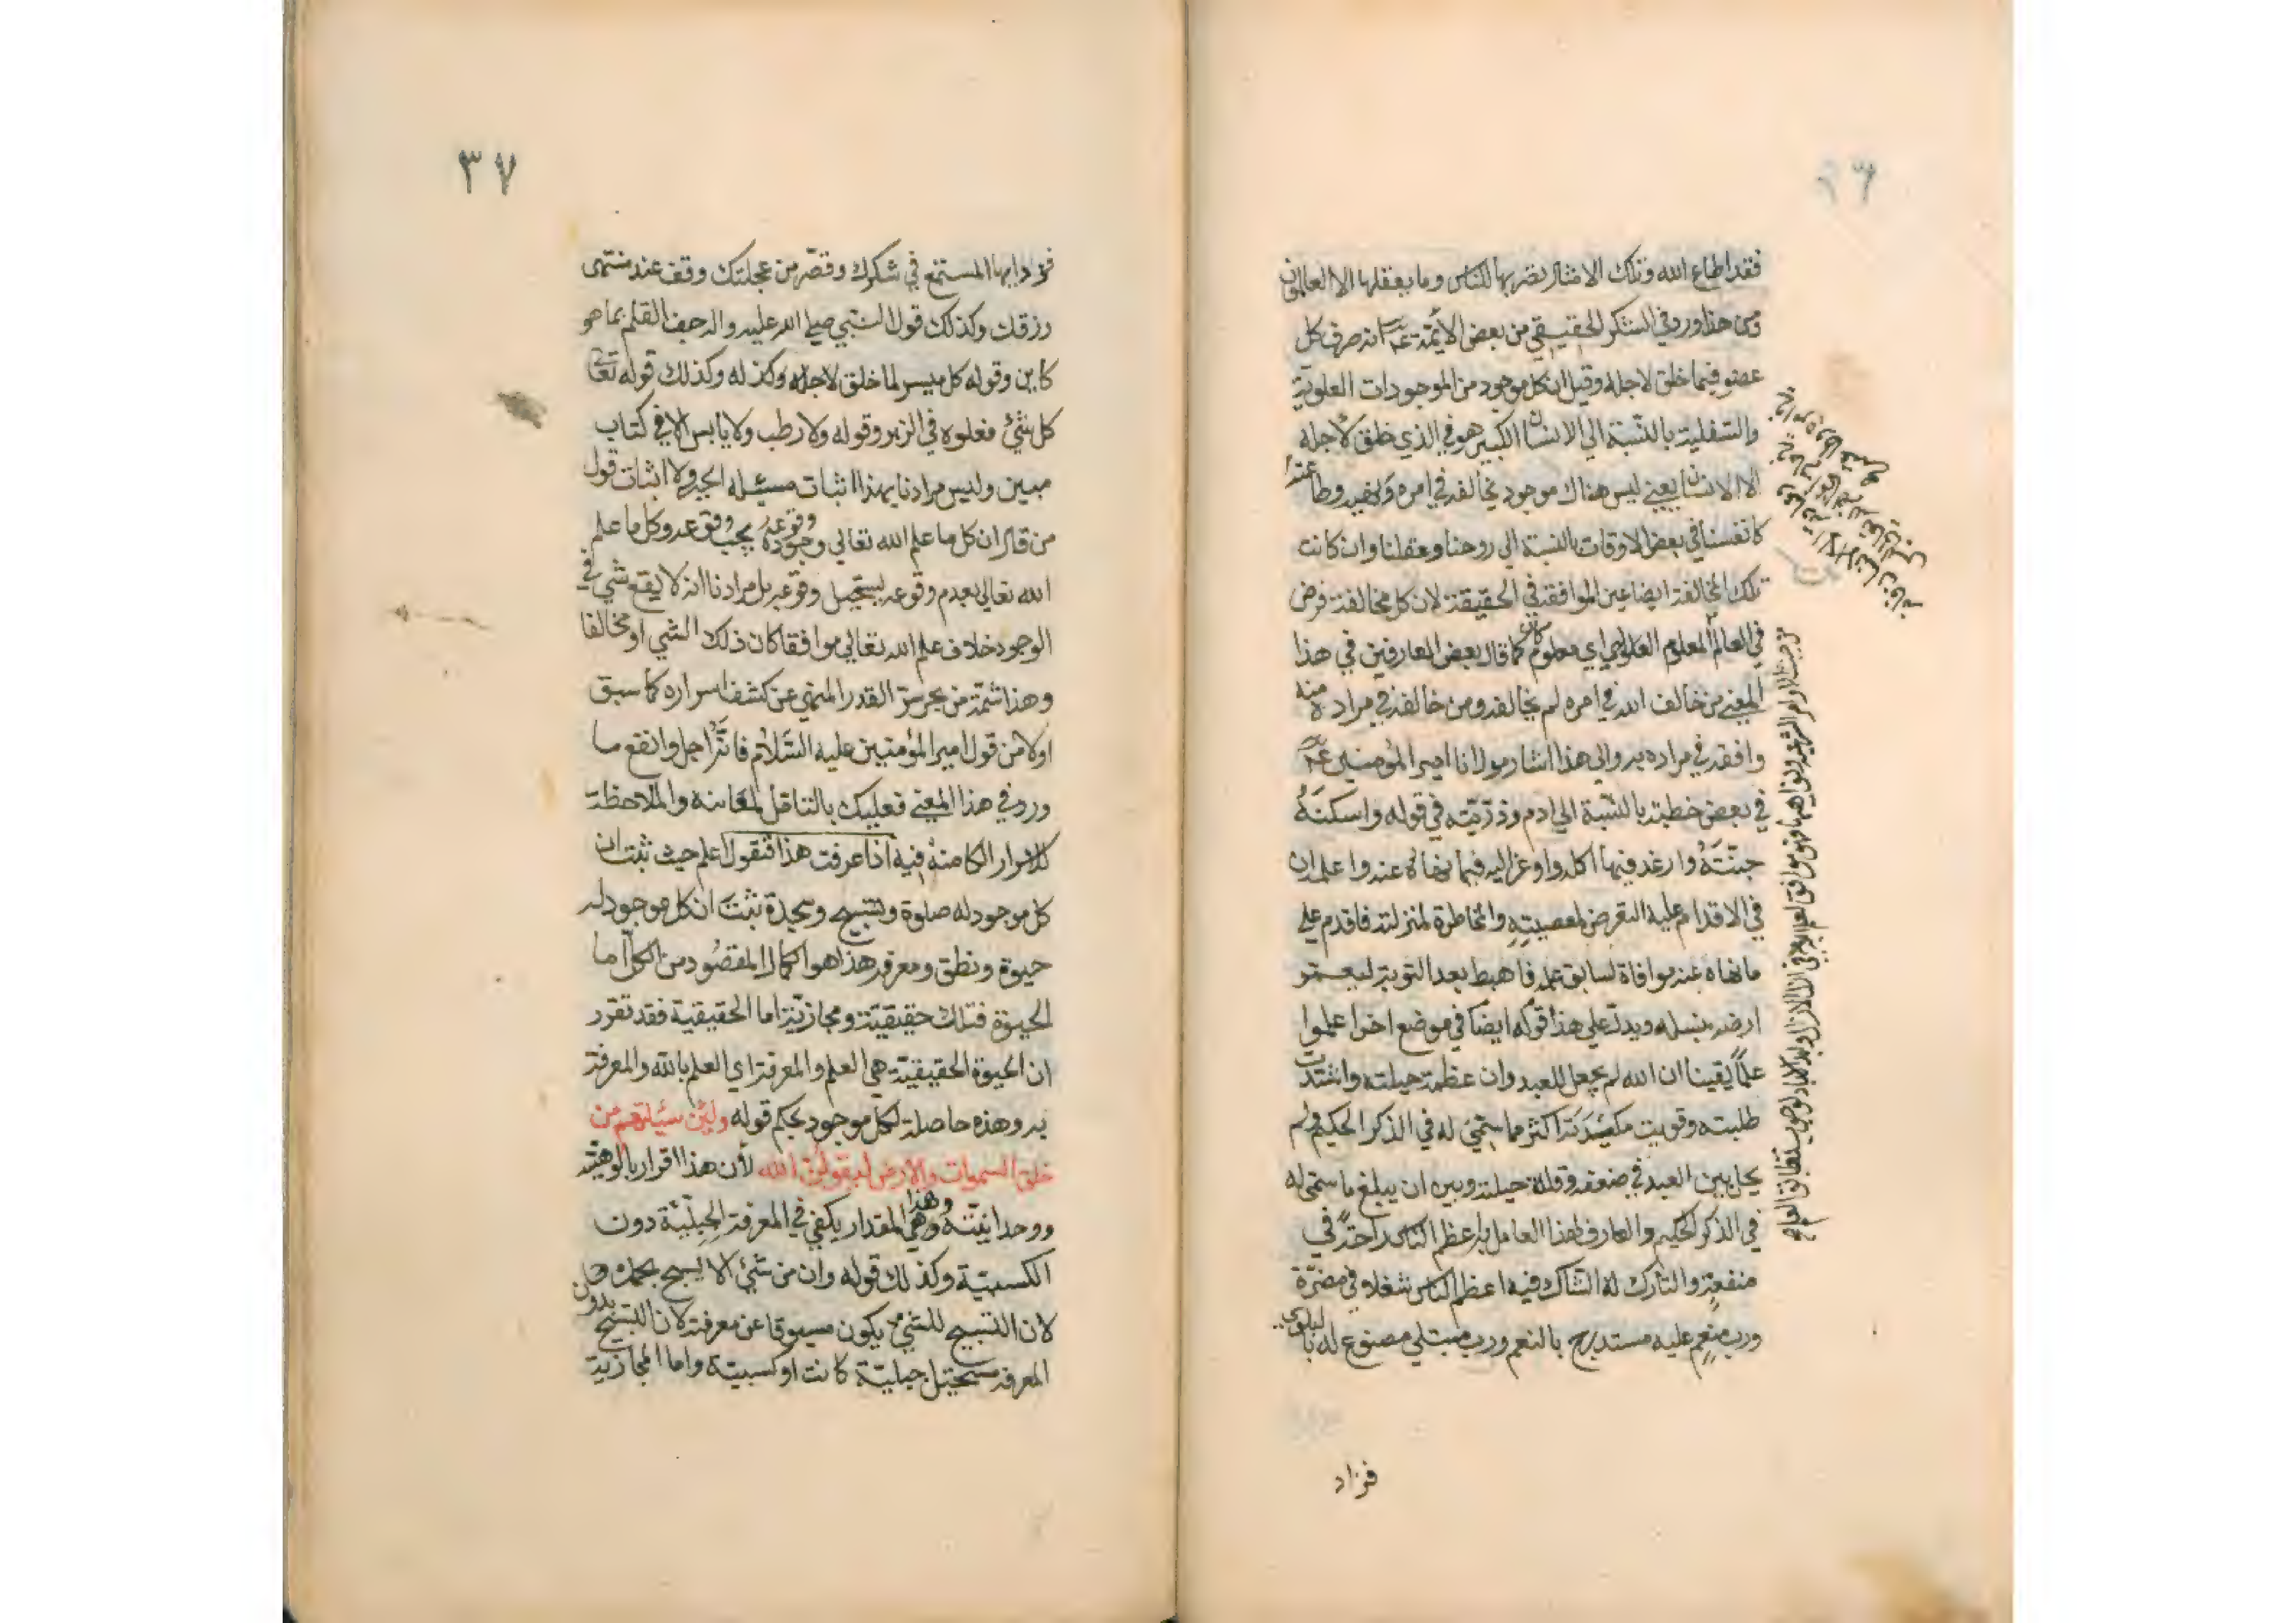 ٣٦
فقد اطاع الله وتلك الامثال نضربها للناس وما يعقلها الا العالمون
ومن هذا ورد في الشكر الحقيقي من بعض الأئمة انه صرف كل
عضو فيما خلق لاجله وقيل ان كل موجود من الموجودات العلوية
والسفلية بالنسبة الي الانسان الكبير هو في الذي خلق لأجله
الا الانسان يعني ليس هناك موجود يخالفه في امره ونهيه وطاعته
كانفسنا في بعض الاوقات بالنسبة الي روحنا وعقلنا وان كانت
تلك المخالفة ايضا عين الموافقة في الحقيقة لان كل مخالفة فرض
في العالم المعلوم كما قال بعض العارفين في هذا
المعني من خالف الله في امره لم يخالفه ومن خالفه في مراده منه
وافقه في مراده به والي هذا اشار مولانا امير المؤمنين
في بعض خطبته بالنسبة الي ادم وذرّيّته في قوله واسكنه
جنّته وارغد فيها اكله واوعز اليه فيما نهاه عنه واعلمه ان
في الاقدام عليه التعرض لمعصيته والمخاطرة لمنزلته فاقدم علي
ما نهاه عنه موافاة لسابق علمه فاهبط بعد التوبة ليعمر
ارضه بنسله ويدل علي هذا قوله ايضا في موضع اخر اعلموا
علماً يقينا ان الله لم يجعل للعبد وان عظمت حيلته واشتدت
طلبته وقويت مكيدته اكثر مما سمّي له في الذكر الحكيم ولم
يحل بين العبد في ضعفه وقلة حيلته وبين ان يبلغ ما سمي له
في الذكر الحكيم والعارف لهذا العامل به اعظم الناس راحة في
منفعة والتارك له الشاك فيه اعظم الناس شغلا في مضرّة
ورب منعم عليه مستدرج بالنعم ورب مبتلي مصنوع له بالبلوي
فزاد
٣٧
فزد ايها المستمع في شكرك وقصّر من عجلتك وقف عند منتهى
رزقك وكذلك قول النبي صلي الله عليه واله جف القلم بما هو
كاين وقوله كل ميسر لما خلق لاجله وكذ له وكذلك قوله تعالى
كل شيء فعلوه في الزبر وقوله ولا رطب ولا يابس الا في كتاب
مبين وليس مرادنا بهذا اثبات مسئله الجبر ولا اثبات قول
من قال ان كل ما علم الله تعالي وجوده وقوعه يجب وقوعه وكل ما علم
الله تعالي بعدم وقوعه يستحيل وقوعه بل مرادنا انه لا يقع شي في
الوجود خلاف علم الله تعالي موافقا كان ذلك الشي او مخالفا
وهذا شمّة من بحر سرّ القدر المنهي عن كشف اسراره كما سبق
اولا من قول امير المؤمنين عليه السّلام فانّه اجل وانفع ما
ورد في هذا المعني فعليك بالتأمل لمعانيه والملاحظة
للاسرار الكامنة فيه اذا عرفت هذا فنقول اعلم حيث ثبت ان
كل موجود له صلوة وتسبيح وسجدة ثبت ان كل موجود له
حيوة ونطق ومعرفه هذا هو الكمال المقصُود من الكل امّا
الحيوة فتلك حقيقيّة ومجازيّة اما الحقيقية فقد تقرر
ان الحيوة الحقيقيّة هي العلم والمعرفة اي العلم بالله والمعرفة
به وهذه حاصلة لكل موجود بحكم قوله ولئن سئلتهم من
خلق السموات والارض ليقولن الله لأن هذا اقرار بالوهيّته
ووحدانيّته وهي وهذا المقدار يكفي في المعرفة الجبليّة دون
الكسبيّة وكذلك قوله وان من شئ الا يسبح بحمده
لان التسبيح للشئ يكون مسبوقا عن معرفته لان التسبيح بدون
المعرفه مستحيل جبليّة كانت او كسبيّة واما المجازية